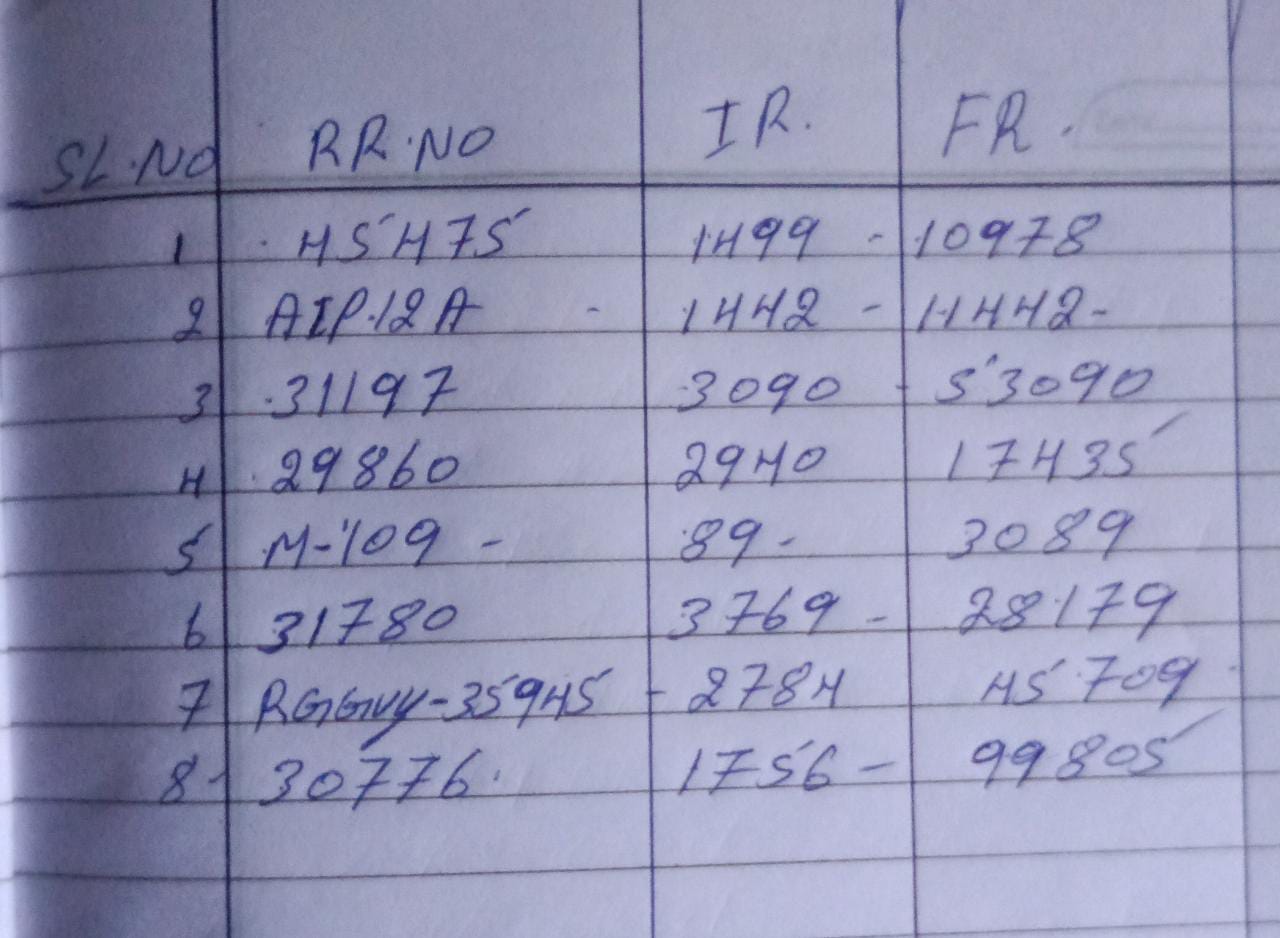 SL.NO RR.NO IR. FR.
1 45475 1499 - 10978
2 AIP.12A - 1442 - 11442-
3 31197 3090 - 53090
4 29860 2940 17435
5 M-109 - 89- 3089
6 31780 3769 - 28179
7 RGGVY-35945 - 2784 45709
8- 30776. 1756 - 99805